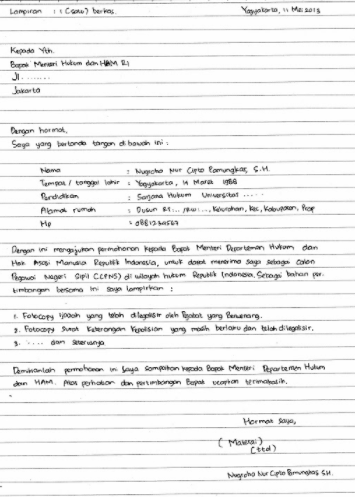 Lampiran : 1 (satu) berkas. Yogyakarta, 11 Mei 2015
Kepada Yth.
Bapak Menteri Hukum dan HAM RI
Jl. .......
Jakarta
Dengan hormat,
Saya yang bertanda tangan di bawah ini :
Nama : Nugroho Nur Cipto Pamungkas, S.H.
Tempat / tanggal lahir : Yogyakarta, 14 Maret 1988
Pendidikan : Sarjana Hukum Universitas .....
Alamat rumah : Dusun RT... /RW..., Kelurahan, Kec, Kabupaten, Prop
Hp :
Dengan ini mengajukan permohonan kepada Bapak Menteri Departemen Hukum dan
Hak Asasi Manusia Republik Indonesia, untuk dapat menerima saya sebagai Calon
Pegawai Negeri Sipil (CPNS) di wilayah hukum Republik Indonesia. Sebagai bahan per-
timbangan bersama ini saya lampirkan :
1. Fotocopy Ijazah yang telah dilegalisir oleh Pejabat yang Berwenang.
2. Fotocopy Surat Keterangan Kepolisian yang masih berlaku dan telah dilegalisir.
3. ..... dan seterusnya
Demikianlah permohonan ini saya sampaikan kepada Bapak Menteri Departemen Hukum
dan HAM. Atas perhatian dan pertimbangan Bapak ucapkan terimakasih.
Hormat saya,
( Materai )
(ttd)
Nugroho Nur Cipto Pamungkas SH.